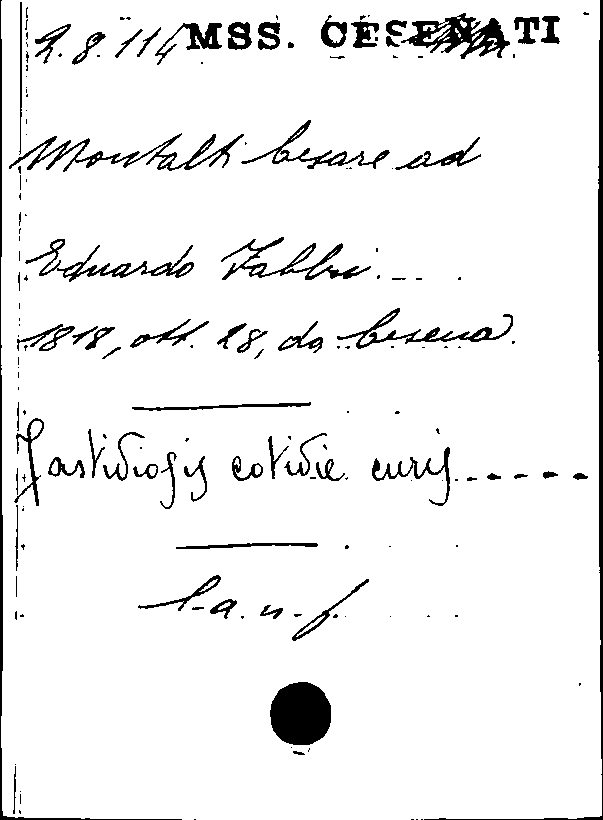 2.8.114 MSS. CESENATI
Montalti Cesare ad
Eduardo Fabbri
1818, ott. 28, da Cesena
Fastidiosis cotidie curis.....
l.a.n.f.